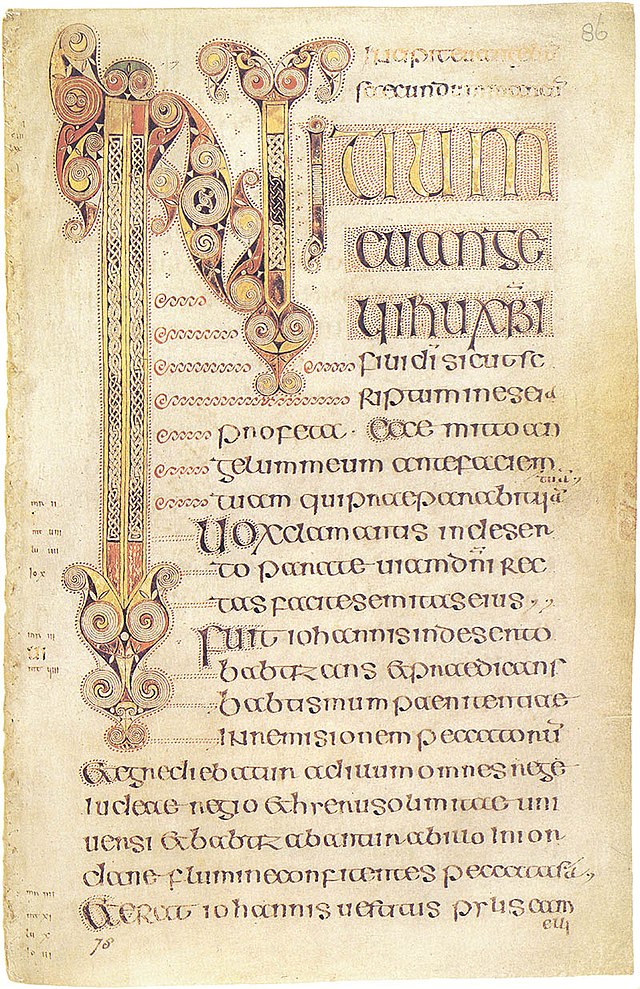 86
secundum marcū
INITIUM
euange
lii ihu xp̄i
filii di sicut sc
riptum in eseia
profeta · Ecce mitto an
gelum meum ante faciem
tuam qui praeparabit uiā
tuā
Uox clamantis in deser
to parate uiam dn̄i rec
tas facite semitas eius
Fuit iohannis in deserto
babtizans & praedicans
babtismum paenitentiae
in remisionem peccatorū
& egrediebatur ad illum omnes
iudeae regio & hirusolimitae uni
uersi & babtizabantur ab illo in ior
dane flumine confitentes peccata sā
& erat iohannis uestitus pylis cam
elli
78